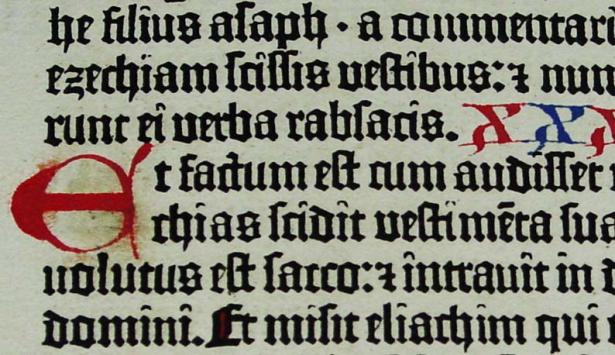 he filius asaph · a commentari
ezechiam scissis vestibus: ⁊ nun
runt ei verba rabsacis. XXX
Et factum est cum audisset
chias scidit vestimēta sua
volutus est sacco: ⁊ intravit in d
domini. Et misit eliachim qui